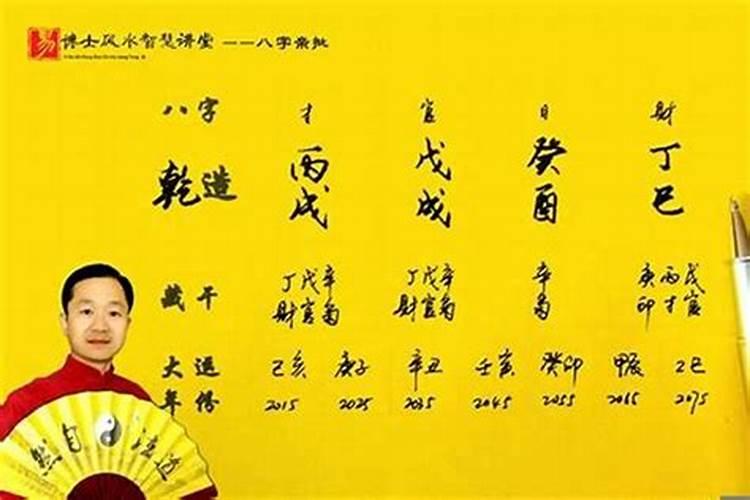 易 博士风水智慧讲堂 ——八字亲批
八字 才 官 日 财
乾造 丙 戊 癸 丁
戌 戌 酉 巳
藏干 丁戊辛 丁戊辛 辛 庚丙戊
财官 财官 印才官
大运 己亥 庚子 辛丑 壬寅 癸卯 甲辰 乙巳
年份 2015 2025 2035 2045 2055 2065 2075
道法自然